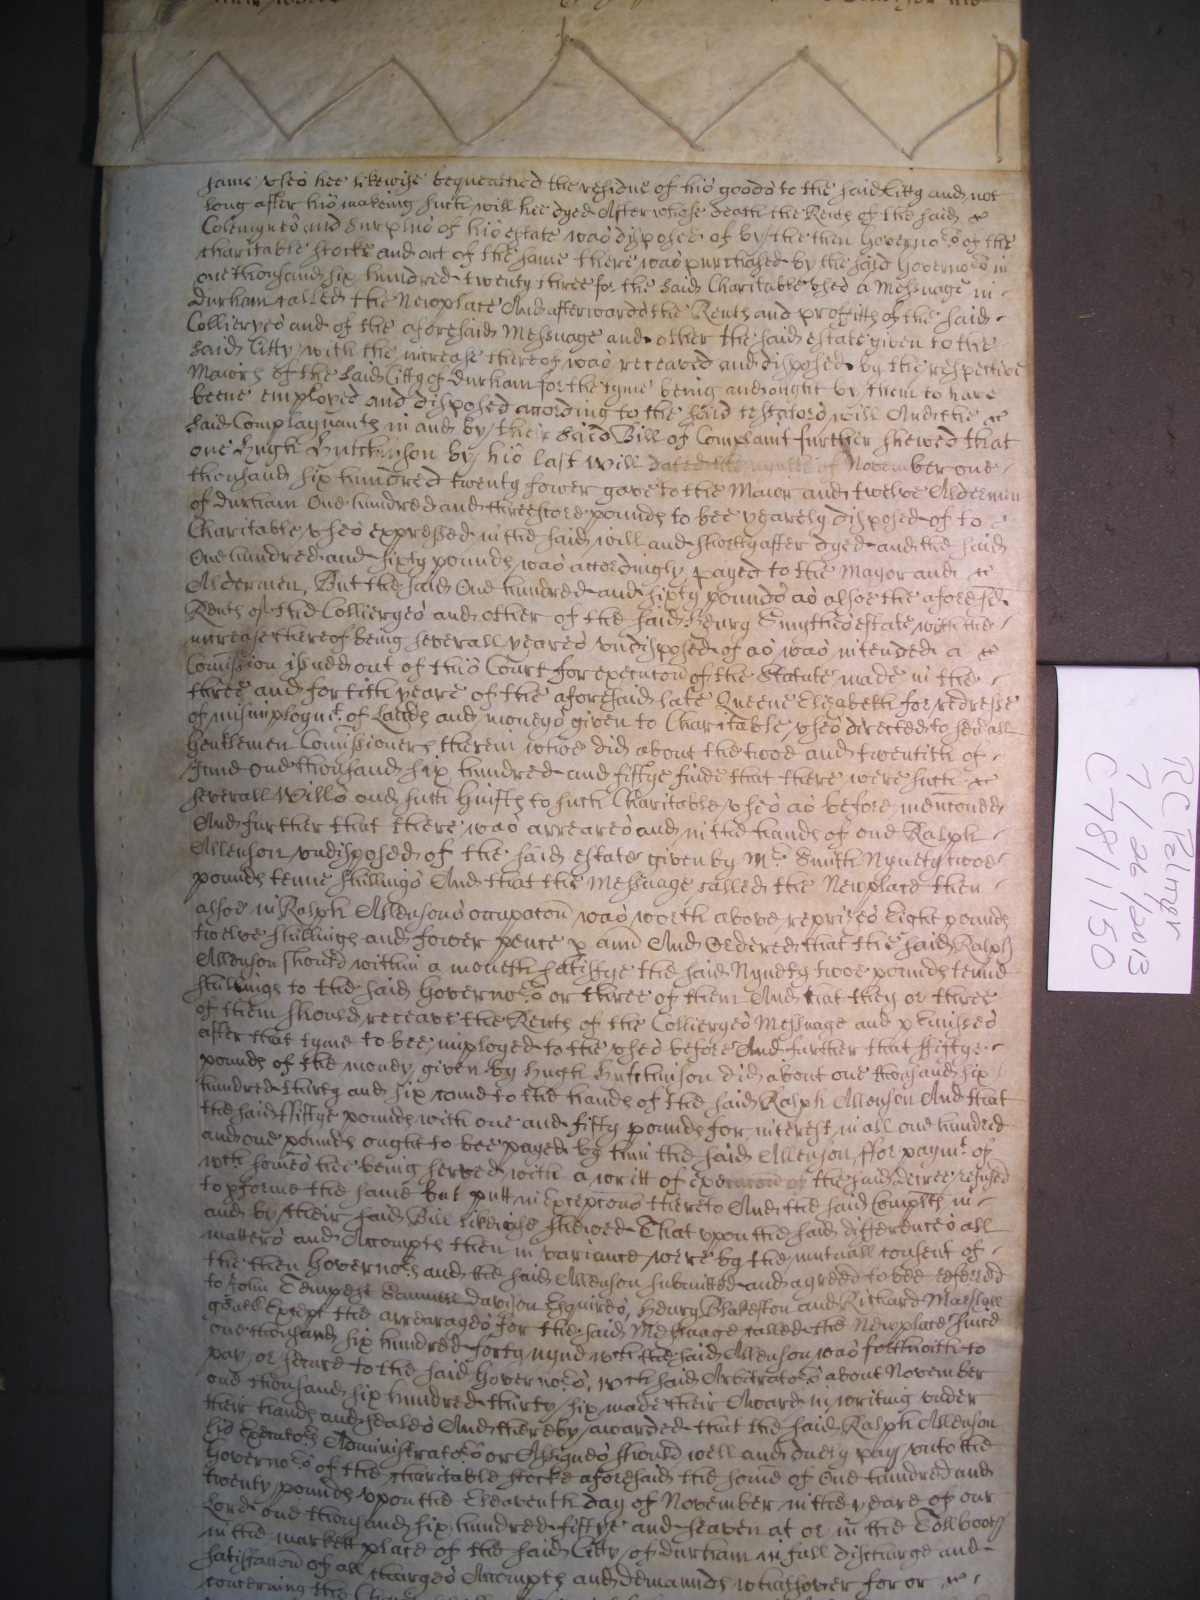 same uses hee likewise bequeathed the residue of his goods to the said Citty and not
long after his makeing such will hee dyed After whose death the Rents of the said &c
Coleinynes and Surplus of his estate was disposed of by the then Governors of the
charitable stocke and out of the same there was purchased by the said Governors in
one thousand six hundred twenty three for the said Charitable uses a Messuage in
Durham called the Newplace And afterwards the Rents and proffitts of the said
Collieryes and of the aforesaid Messuage and other the said estate given to the
said Citty with the increase thereof was received and disposed by the respective
Maiors of the said Citty of Durham for the tyme being and ought by them to have
beene employed and disposed according to the said testators will And the &c
said Complaynants in and by their said Bill of Complaint further shewed that
one Hugh Hutchinson by his last will dated the of November one
thousand six hundred twenty fower gave to the Maior and twelve Aldermen
of Durham One hundred and threescore pounds to bee yearely disposed of to &c
Charitable uses expressed in the said will and shortly after dyed and the said
One hundred and sixty pounds was accordingly payed to the Mayor and &c
Aldermen, But the said One hundred and sixty pounds as alsoe the aforesd
Rents of the Collieryes and other of the said Henry Smythes estate with the
increase thereof being severall yeares undisposed of as was intended a &c
Comission issued out of this Court for execucon of the Statute made in the
three and fortith yeare of the aforesaid late Queene Elizabeth for redresse
of misimploymt. of Lands and moneys given to Charitable uses directed to severall
Gentlemen Comissioners therein whoe did about the twoe and twentith of
June one thousand six hundred and fiftye finde that there were such &c
severall Wills and such Guifts to such Charitable uses as before mentoned
And further that there was arreares and in the hands of one Ralph
Allenson undisposed of the said estate given by Mr. Smith Nynety twoe
pounds tenne shillings And that the Messuage called the Newplace then
alsoe in Ralph Allensons occupacon was worth above reprizes Eight pounds
twelve shillings and fower pence p ann And Ordered that the said Ralph
Allenson should within a moneth satisfye the said Nynety twoe pounds tenne
shillings to the said Governors or three of them And that they or three
of them should receave the Rents of the Collieryes Messuage and pmisses
after that tyme to bee imployed to the uses before And further that ffiftye
pounds of the money given by Hugh Hutchinson did about one thousand six
hundred thirty and six come to the hands of the said Ralph Allenson And that
the said ffiftye pounds with one and fifty pounds for interest in all one hundred
and one pounds ought to bee payed by him the said Allenson, ffor paymt. of
wch somes hee being served with a writt of execucon of the said decree refused
to pforme the same but putt in Excepcons thereto And the said Complts in
and by their said Bill likewise shewed That upon the said differences all
matters and Accompts then in variance were by the mutuall consent of
the then Governors and the said Allenson submitted and agreed to bee referred
to John Tempest Samuell Davison Esquires, Henry Blakeston and Richard Marshall
gents Except the arrearages for the said Messuage called the Newplace since
one thousand six hundred forty nyne wch the said Allenson was forthwith to
pay or secure to the said Governors, wch said Arbitrators about November
one thousand six hundred thirty six made their Award in writing under
their hands and seales And thereby awarded that the said Ralph Allenson
his Executors Administrators or Assignes should well and duely pay unto the
Governors of the charitable stocke aforesaid the some of One hundred and
twenty pounds upon the Eleaventh day of November in the yeare of our
Lord one thousand six hundred fiftye and seaven at or in the Tollbooth
in the markett place of the said Citty of Durham in full discharge and
satisfaccon of all charges Accompts and demaunds whatsoever for or &c
concerning the